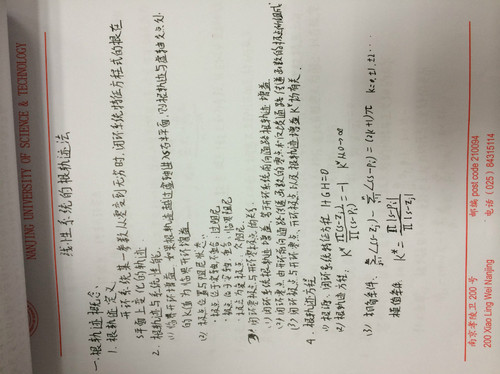 NANJING UNIVERSITY OF SCIENCE & TECHNOLOGY
线性系统的根轨迹法
一.根轨迹概念、
1. 根轨迹定义
开环系统某一参数从零变到无穷时,闭环系统特征方程式的根在
s平面上变化的轨迹.
2. 根轨迹与系统性能.
(1) 临界开环增益. 如果根轨迹越过虚轴进入s右半平面, 则根轨迹与虚轴交点处
的K值为临界开环增益
(2) 极点位置与阻尼状态.
· 极点位于实轴,不重合:过阻尼
· 极点位于实轴,重合:临界阻尼
· 极点为复极点:欠阻尼.
3) 闭环零极点与开环零点、极点的关系.
(1) 闭环系统根轨迹增益,等于开环系统前向通路根轨迹增益
(2) 闭环零点由开环前向通路传递函数的零点和反馈通路传递函数的极点所组成
(3) 闭环极点与开环零点、开环极点以及根轨迹增益K*均有关.
4. 根轨迹方程
(1) 闭环系统特征方程 1+GH=0
(2) 根轨迹方程: K* ∏(s-Zj)/∏(s-Pi) = -1 K* 从0→∞
(3) 相角条件. Σ∠(s-Zj) - Σ∠(s-Pi) = (2k+1)π k=0,±1,±2...
模值条件 K* = ∏|s-Pi|/∏|s-Zj|
南京孝陵卫 200 号 邮编 post code 210094
200 Xiao Ling Wei Nanjing 电话(025)84315114